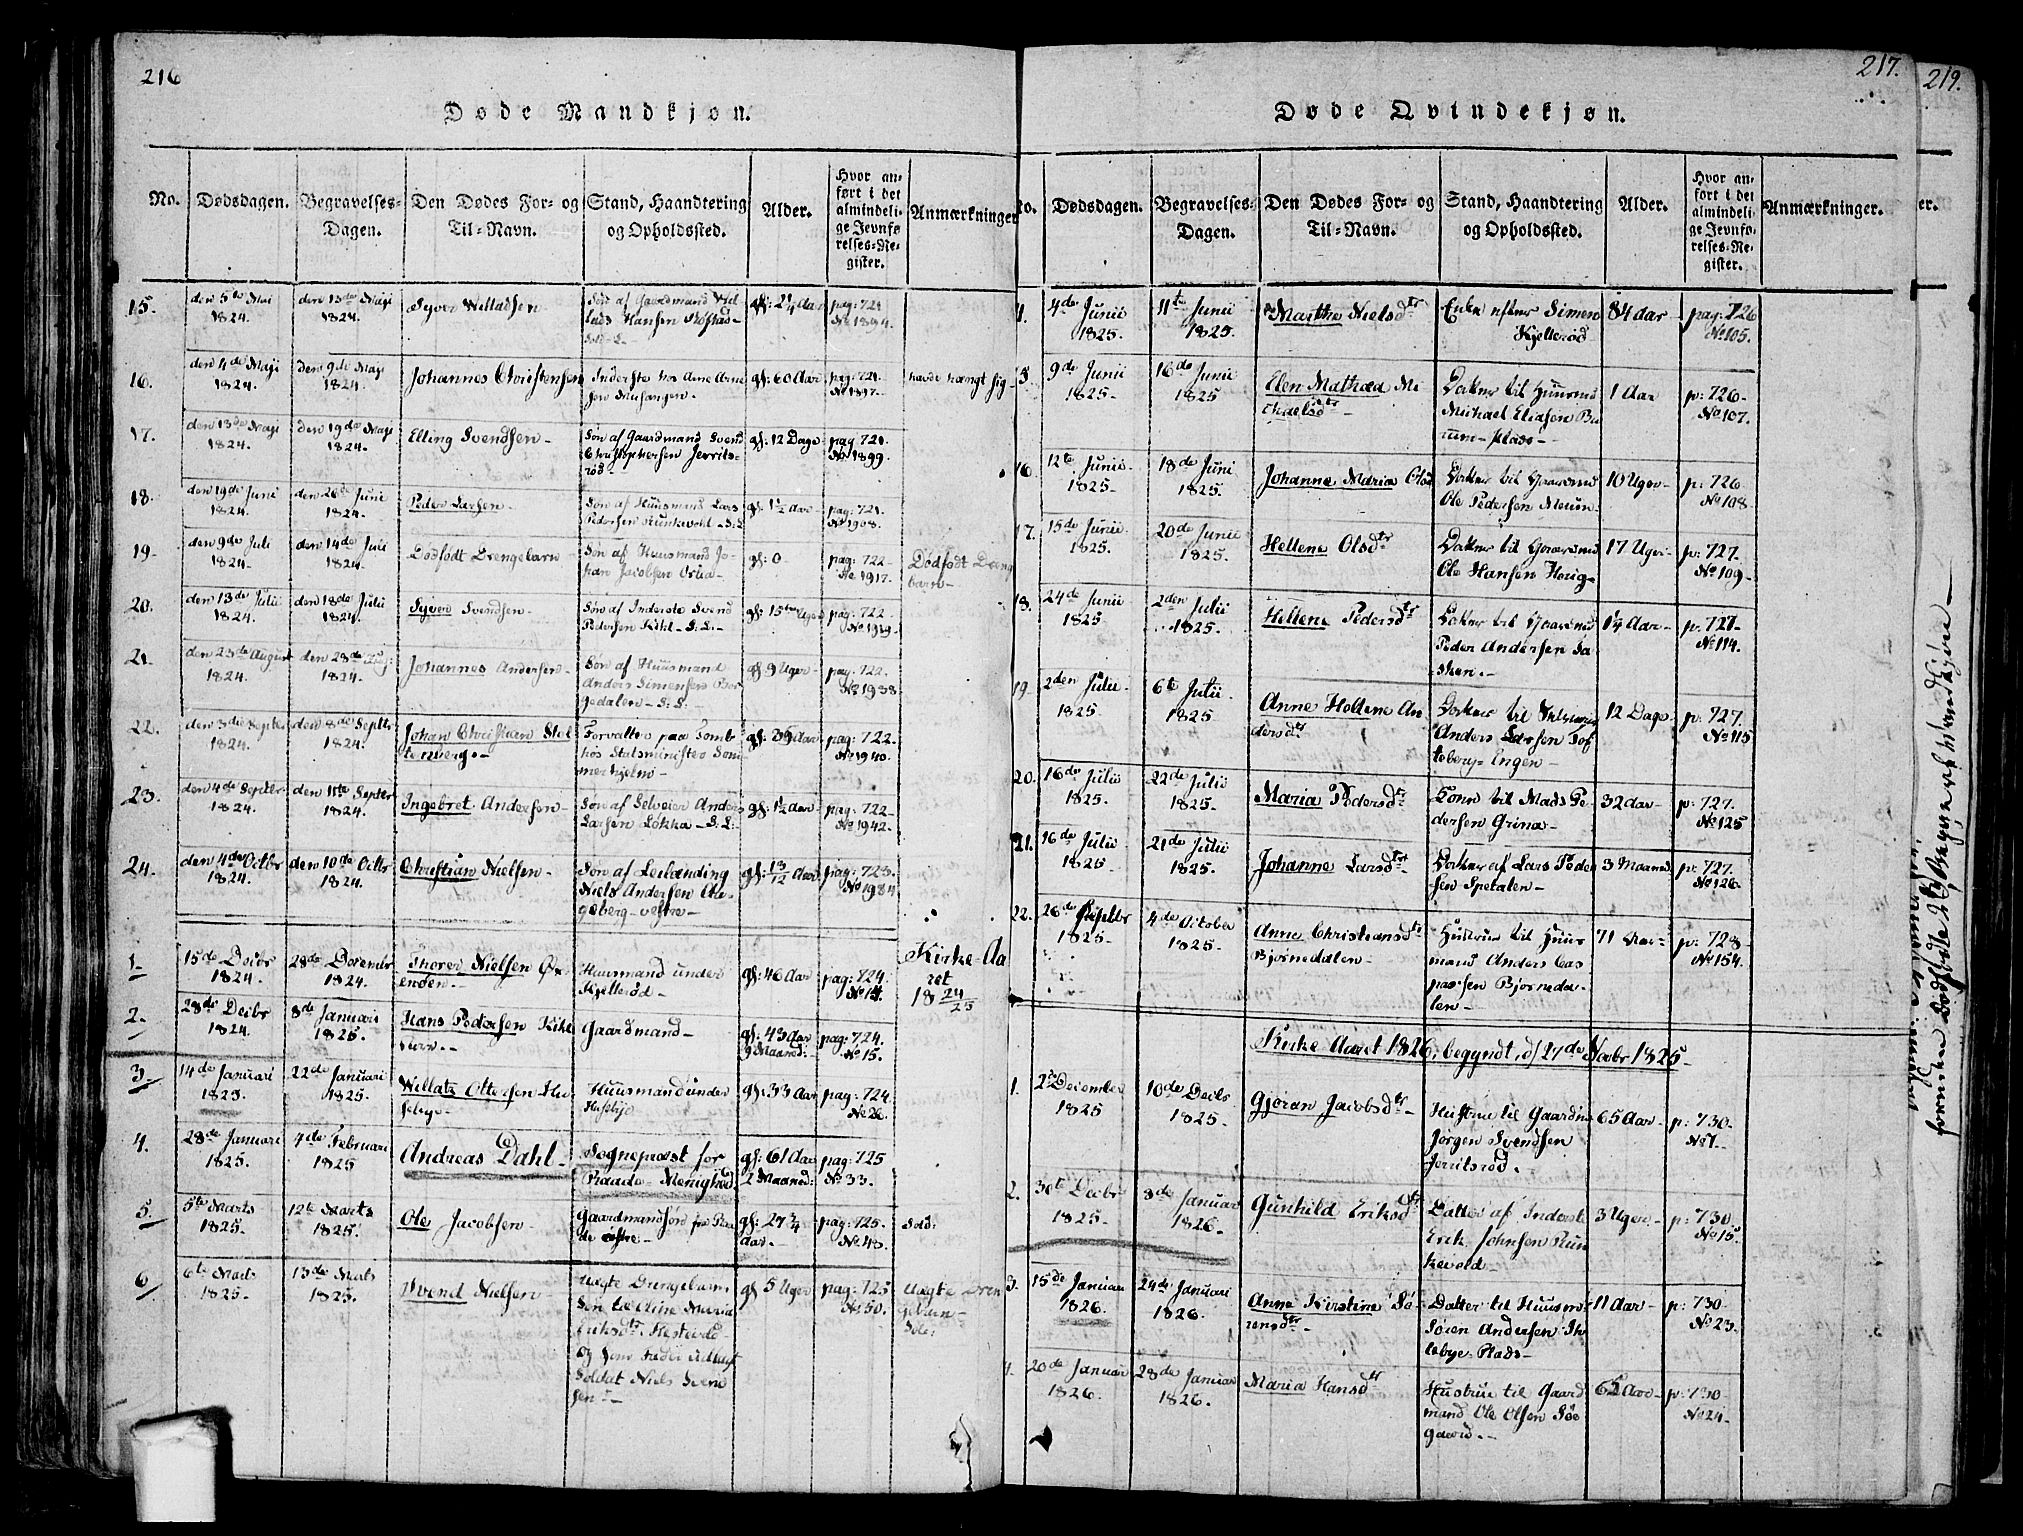 216
Døde Mandkjøn.
No.
Dødsdagen.
Begravelses-
Dagen.
Den Dødes For- og
Til-Navn.
Stand, Haandtering
og Opholdssted.
Alder.
Hvor an-
ført i det
almindeli-
ge Jevnfø-
relses-Re-
gister.
Anmærkninger
15. den 5te Mai
1824.
den 13de Maji
1824.
Syver Willadsen
Søn af Gaardmand Wil
lads Hansen
gl: 2¼ Aar
pag: 721
No 1894.
16. den 4de Maji
1824.
den 9de Maji
1824.
Johannes Christensen
Inderste hos Arne Arne
sen
gl: 60 Aar
pag: 721.
No 1897.
havde hængt sig
17. den 13de Maji
1824.
den 19de Maji
1824.
Elling Svendsen
Søn af Gaardmand Svend
Christophersen Jerrits-
rød
gl: 12 Dage
pag 721.
No 1899.
18. den 19de Juni
1824.
den 26de Juni
1824.
Peder Larsen
Søn af Huusmand Lars
Pedersen
gl: 1½ Aar
pag: 721.
No 1908.
19. den 9de Juli
1824.
den 14de Juli
1824.
Dødfødt Drengebarn
Søn af Huusmand Jo-
han Jacobsen
gl: 0
pag: 722
No 1917.
Dødfødt Dreng
barn
20. den 13de Julii
1824.
den 18de Julii
1824.
Syver Svendsen
Søn af Inderste Svend
Pedersen Kihl
gl: 15 Uger
pag: 722.
No 1919.
21. den 23de August
1824.
den 28de Aug:
1824.
Johannes Andersen
Søn af Huusmand
Anders Simensen Bor
gedalen
gl: 9 Uger
pag: 722.
No 1938.
22. den 3die Septbr
1824.
den 8de Septbr
1824.
Johan Christian Stol
tenberg
Forvalter paa Tomb
hos Statsminister Som
merhjelm
Aar
pag: 722.
No 1940.
23. den 4de Septbr
1824.
den 11te Septbr
1824.
Ingebret Andersen
Søn af Selveier Anders
Larsen Løkka
gl: 1½ Aar
pag: 722
No 1942.
24. den 4de Octbr
1824.
den 10de Octbr
1824.
Christian Nielsen
Søn af Leilænding
Niels Andersen
vestre
gl: 13/12 Aar
pag: 723.
No 1984
1. 15de Decbr
1824.
28de Decembr
1824.
Thorer Nielsen
Huusmand under
Kjellerød
gl: 46 Aar
pag: 724.
No 14.
Kirke-Aa
ret
18 24/25
2. 28de Decbr
1824.
8de Januari
1825.
Hans Pedersen
Gaardmand
gl: 43 Aar
9 Maaned:
pag: 724.
No 15.
3. 14de Januari
1825.
22de Januari
1825.
Willatz Ottersen Hu
sebye
Huusmand under
Husebye
gl: 33 Aar
pag: 724.
No 26.
4. 28de Januari
1825.
4de Februari
1825
Andreas Dahl
Sognepræst for
Raade Menighed
gl: 61 Aar
2 Maaned:
pag: 725
No 33.
5. 5te Marts
1825.
12te Marts
1825.
Ole Jacobsen
Gaardmandssøn fra Raa
de østre
gl: 27¾
Aar
pag: 725.
No 48.
Sold:
6. 6te Marts
1825.
13de Marts
1825.
Svend Nielsen
Uægte Drengebarn
Søn til Aline Maria
Eriksdtr
og Fader
Soldat Niels Svend
sen
gl 5 Uger
pag: 725
No 50.
Uægte Dren
gebarn
217.
Døde Qvindekjøn.
No.
Dødsdagen.
Begravelses-
Dagen.
Den Dødes For- og
Til-Navn.
Stand, Haandtering
og Opholdssted.
Alder.
Hvor an-
ført i det
almindeli-
ge Jevnfø-
relses-Re-
gister.
Anmærkninger.
4de Junii
1825.
11te Junii
1825.
Marthe Nielsdtr
Enke efter Simen
Kjellerød
84 Aar
pag: 726
No 105.
9de Junii
1825.
16de Junii
1825
Elen Mathea Mi
chaelsdtr
Datter til Huusmd
Michael Eliasen
Plads
1 Aar
p: 726
No 107.
16. 12te Junii
1825.
18de Juni
1825.
Johanne Maria Olsd
Datter til Gaardmd
Ole Pedersen
10 Uger
p: 726
No 108.
17. 15de Junii
1825.
20de Junii
1825.
Hellene Olsdtr
Datter til Gaardmd
Ole Hansen Haug
17 Uger
p: 727.
No 109.
18. 24de Junii
1825.
2den Julii
1825.
Hellene Pedersdtr
Datter til Gaardmd
Peder Andersen
1¼ Aar
p: 727.
No 114.
19. 2den Julii
1825.
6te Julii
1825.
Anne Hellene An
dersdtr
Datter til
Anders Larsen Tof
teberg Engen
12 Dage
p: 727.
No 115
20. 16de Julii
1825.
22de Julii
1825.
Maria Pedersdtr
Kone til Mads Pe
dersen Grina
32 Aar
p: 727.
No 125
21. 16de Julii
1825.
21de Julii
1825.
Johanne Larsdtr
Datter af Lars Peder
sen Spetalen
3 Maaned
p: 727.
No 126.
22. 26de Septbr
1825.
4de October
1825.
Anne Christiansdtr
Bjørnedalen
Hustrue til Huus
mand Anders Cas
persen Bjørneda-
len
71 Aar
p: 728
No 154.
Kirke Aaret 1826, begyndt d 27de Novbr 1825
1. 2de December
1825
10de Decbr
1825.
Gjøran Jacobsdtr
Hustrue til Gaardm
Jørgen Svendsen
Jerritsrød.
65 Aar
p: 730.
No 1.
2. 30te Decbr
1825.
8de Januar
1826.
Gunhild Eriksdtr
Datter af Inderste
Erik Johnsen Run
kevold
3 Uger
p: 730
No 15.
3. 15de Januar
1826.
24de Januari
1826.
Anne Kirstine Sø
rensdtr
Datter til Huusm
Søren Andersen
Plads
11 Aar
p: 730
No 23.
20de Januar
1826.
28de Januar
1826.
Maria Hansdtr
Hustrue til Gaard
mand Ole Olsen Søe
gaard.
65 Aar
p: 730
No 24.
219.
er.